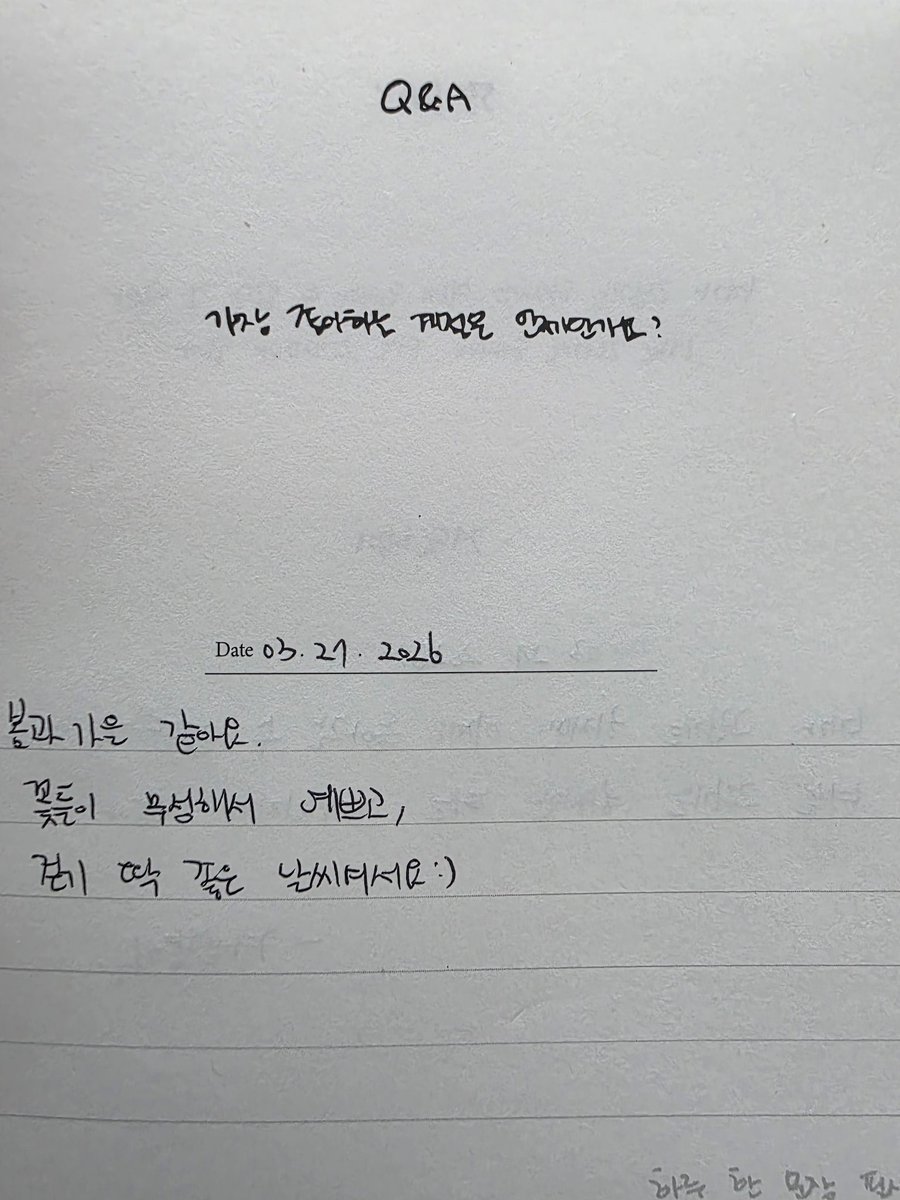 Q&A
가장 좋아하는 계절은 언제인가요?
Date 03. 27. 2026
봄과 가을 같아요.
꽃들이 무성해서 예쁘고,
걷기 딱 좋은 날씨여서요:)
하루 한 문장 필사